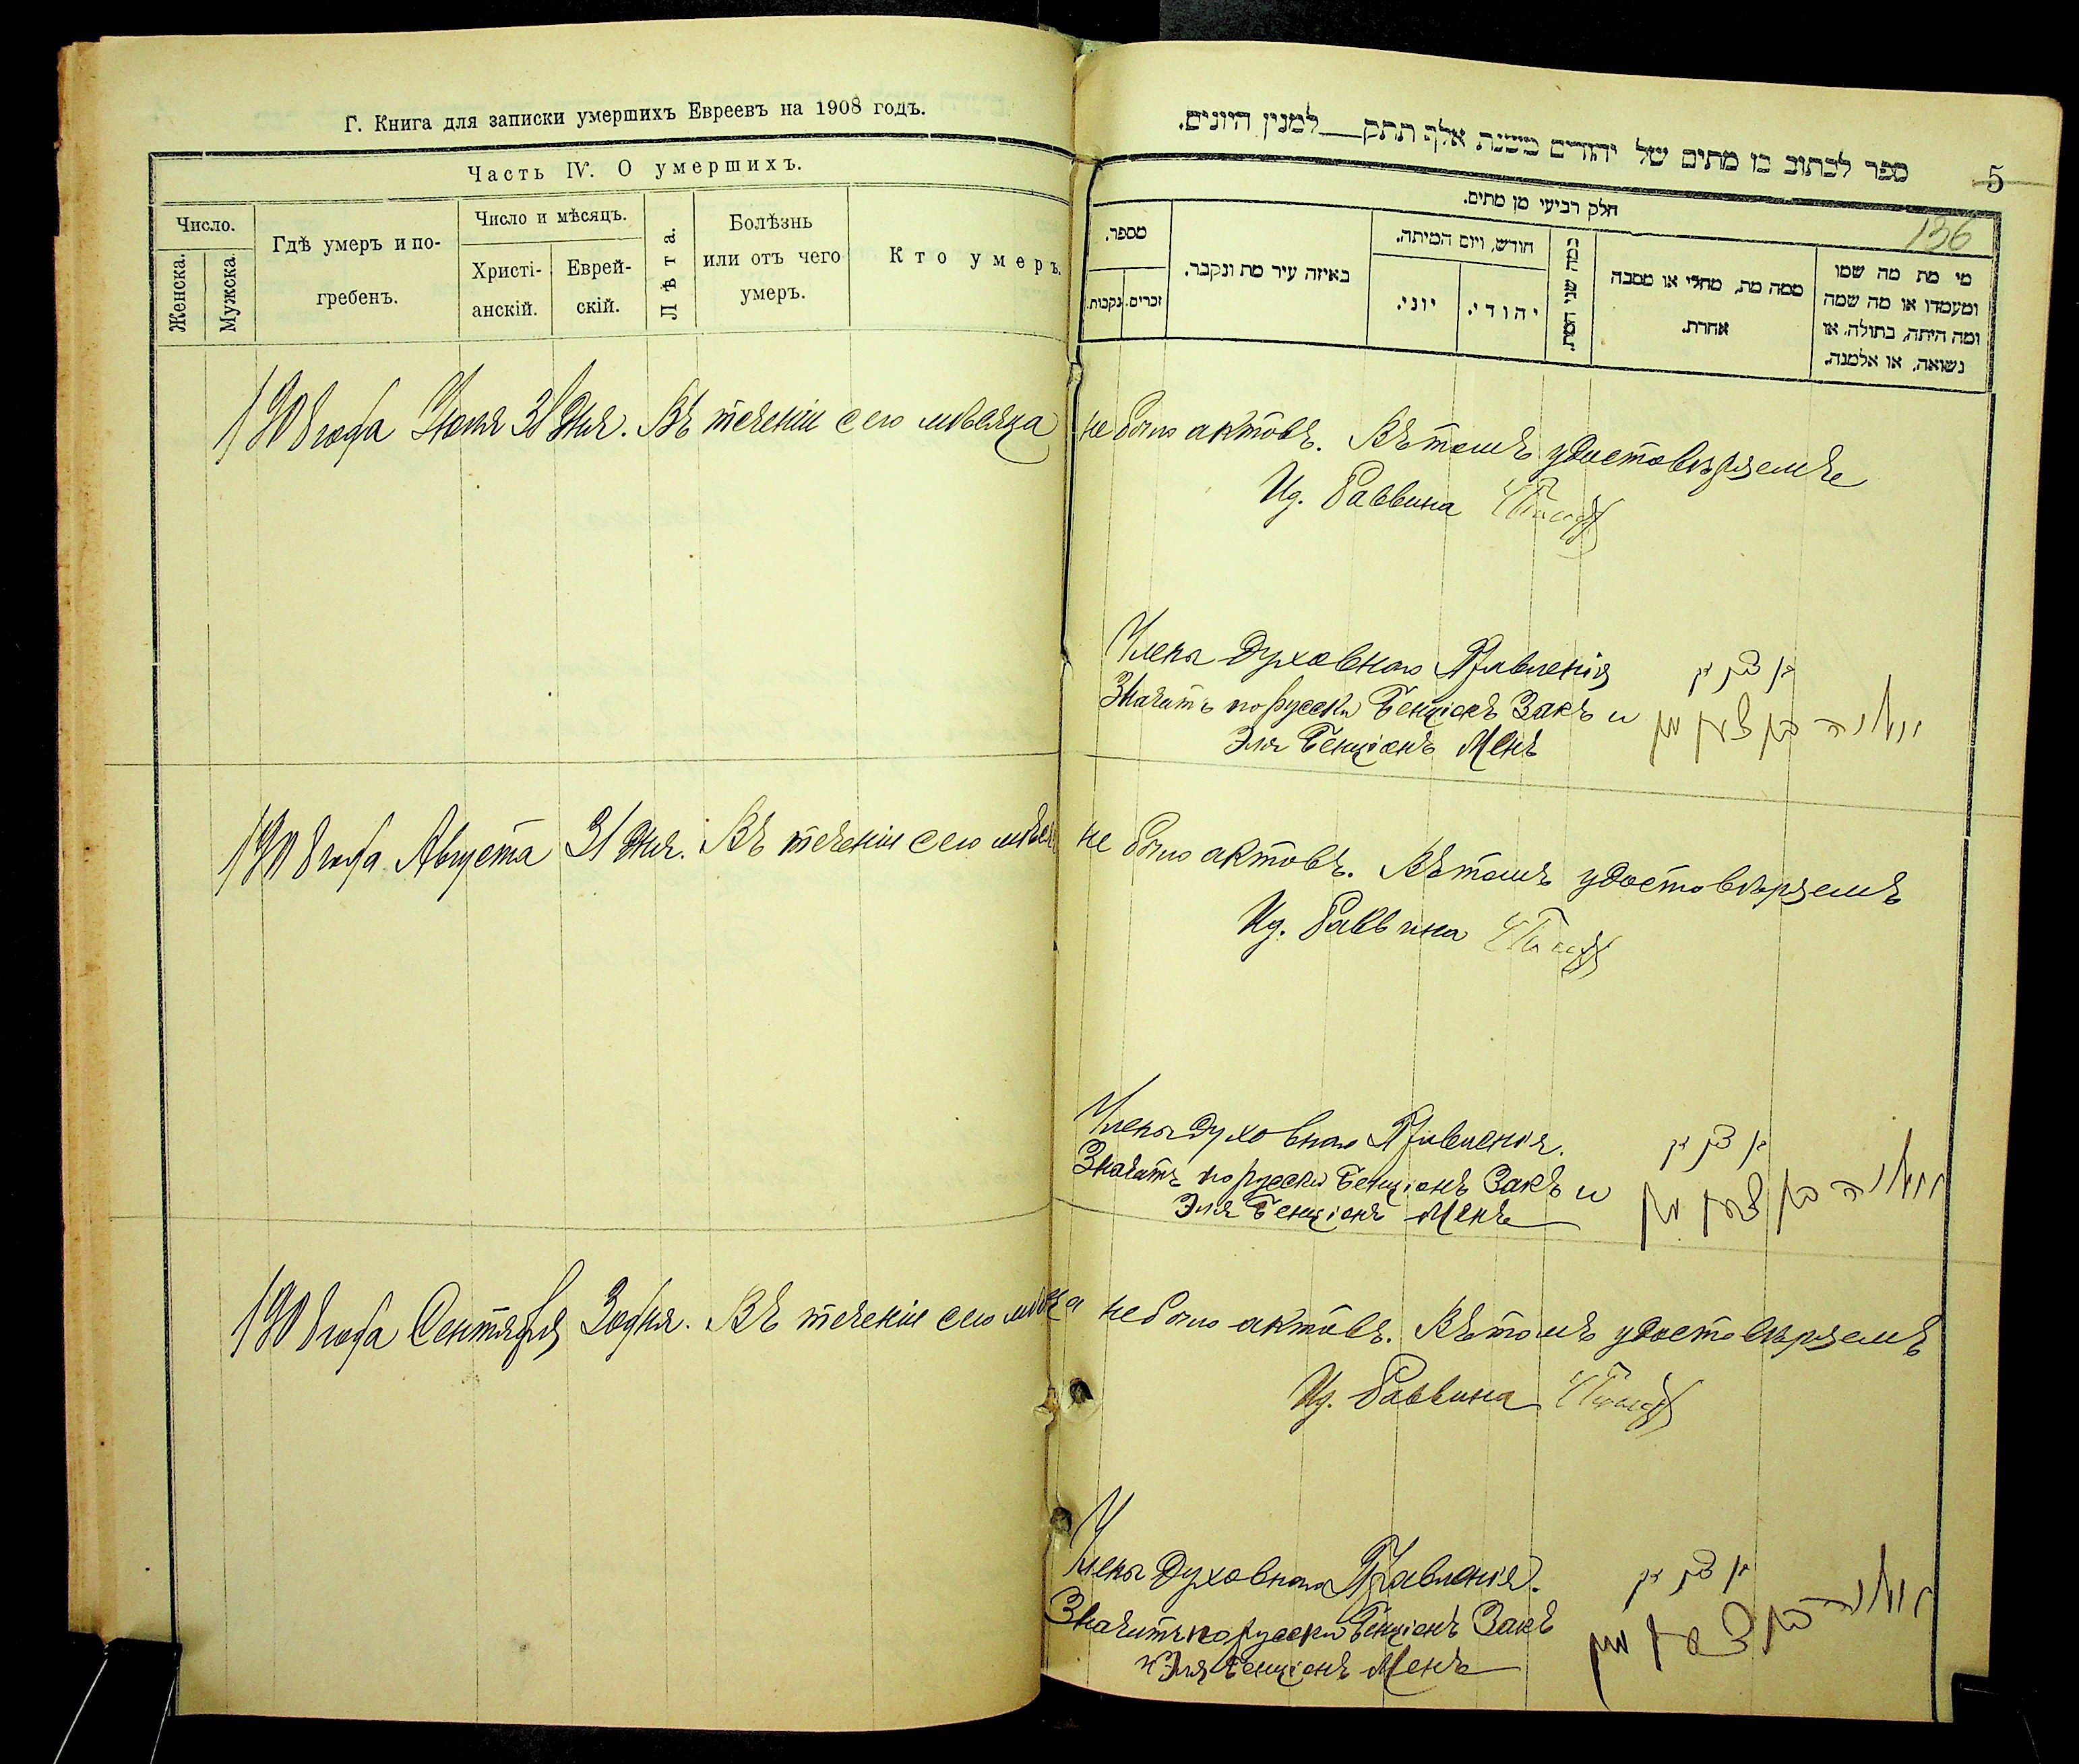 Г. Книга для записки умершихъ Евреевъ на 1908 годъ.
Часть IV. О умершихъ.
Число.
Женска.
Мужска.
Гдѣ умеръ и по-
гребенъ.
Число и мѣсяцъ.
Христі-
анскій.
Еврей-
скій.
Лѣта.
Болѣзнь
или отъ чего
умеръ.
Кто умеръ.
ספר לכתוב בו מתים של יהודים משנת אלף תתק למנין היונים.
5
136
חלק רביעי מן מתים.
מספר.
נקבות.
זכרים.
באיזה עיר מת ונקבר.
חודש, ויום המיתה.
יוני.
יהודי.
כמה שני המת.
ממה מת, מחלי או מסבה
אחרת.
מי מת מה שמו
ומעמדו או מה שמה
ומה היתה, בתולה, או
נשואה, או אלמנה.
1908 года Июля 31 дня. Въ теченіи сего мѣсяца не было актовъ. Въ томъ удостовѣряемъ
Ид. Раввина
Члены Духовнаго Правленія
Значитъ по русски Бенціонъ Закъ и
Эля Бенціонъ Менъ
1908 года Августа 31 дня. Въ теченіи сего не было актовъ. Въ томъ удостовѣряемъ
Ид. Раввина
Члены Духовнаго Правленія.
Значитъ по русски Бенціонъ Закъ и
Эля Бенціонъ Менъ
1908 года Сентября 30 дня. Въ теченіи сего не было актовъ. Въ томъ удостовѣряемъ
Ид. Раввина
Члены Духовнаго Правленія.
Значитъ по русски Бенціонъ Закъ
и Эля Бенціонъ Менъ